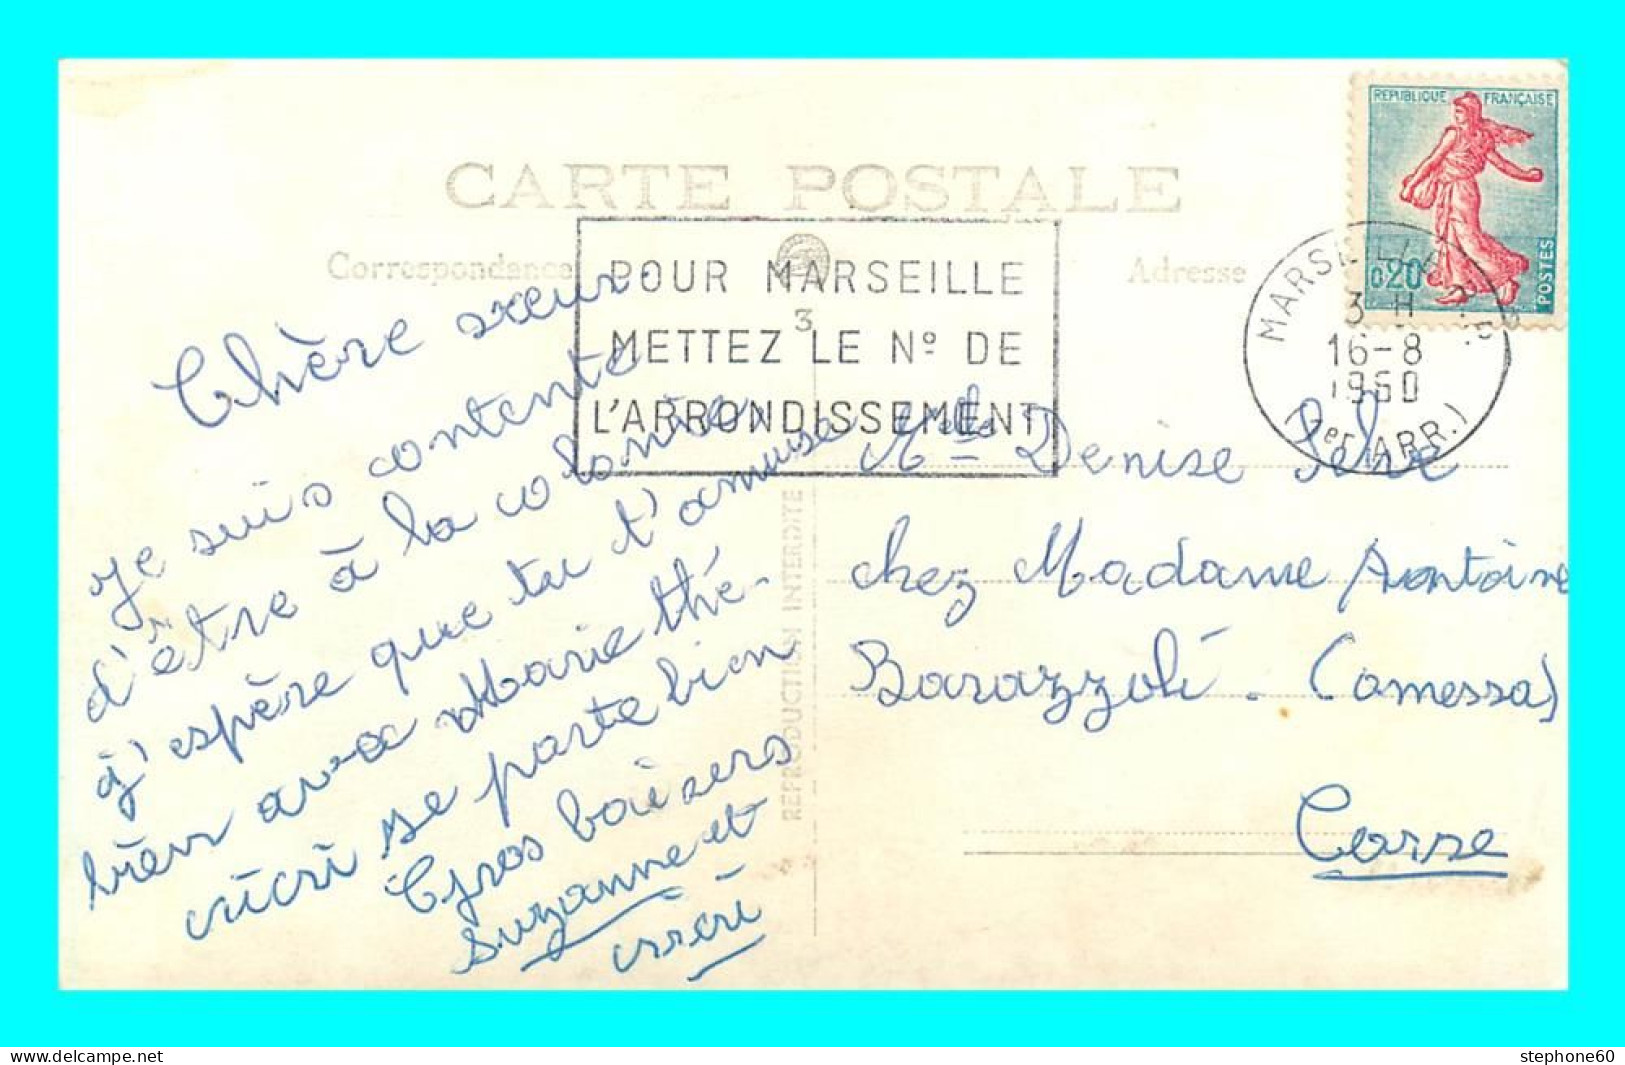 CARTE POSTALE
Correspondance
Adresse
REPUBLIQUE FRANÇAISE
0,20
POSTES
POUR MARSEILLE
3
METTEZ LE Nº DE
L'ARRONDISSEMENT
MARSEILLE
16-8
1960
(1er ARR.)
Chère sœur.
Je suis contente
d'être à la colonie
j'espère que tu t'amuse
bien avec Marie thé-
ici se porte bien
Gros baisers
Suzanne et
Melle Denise
chez Madame Antoine
Barazzoli - (omessa)
Corse
REPRODUCTION INTERDITE
stephone60